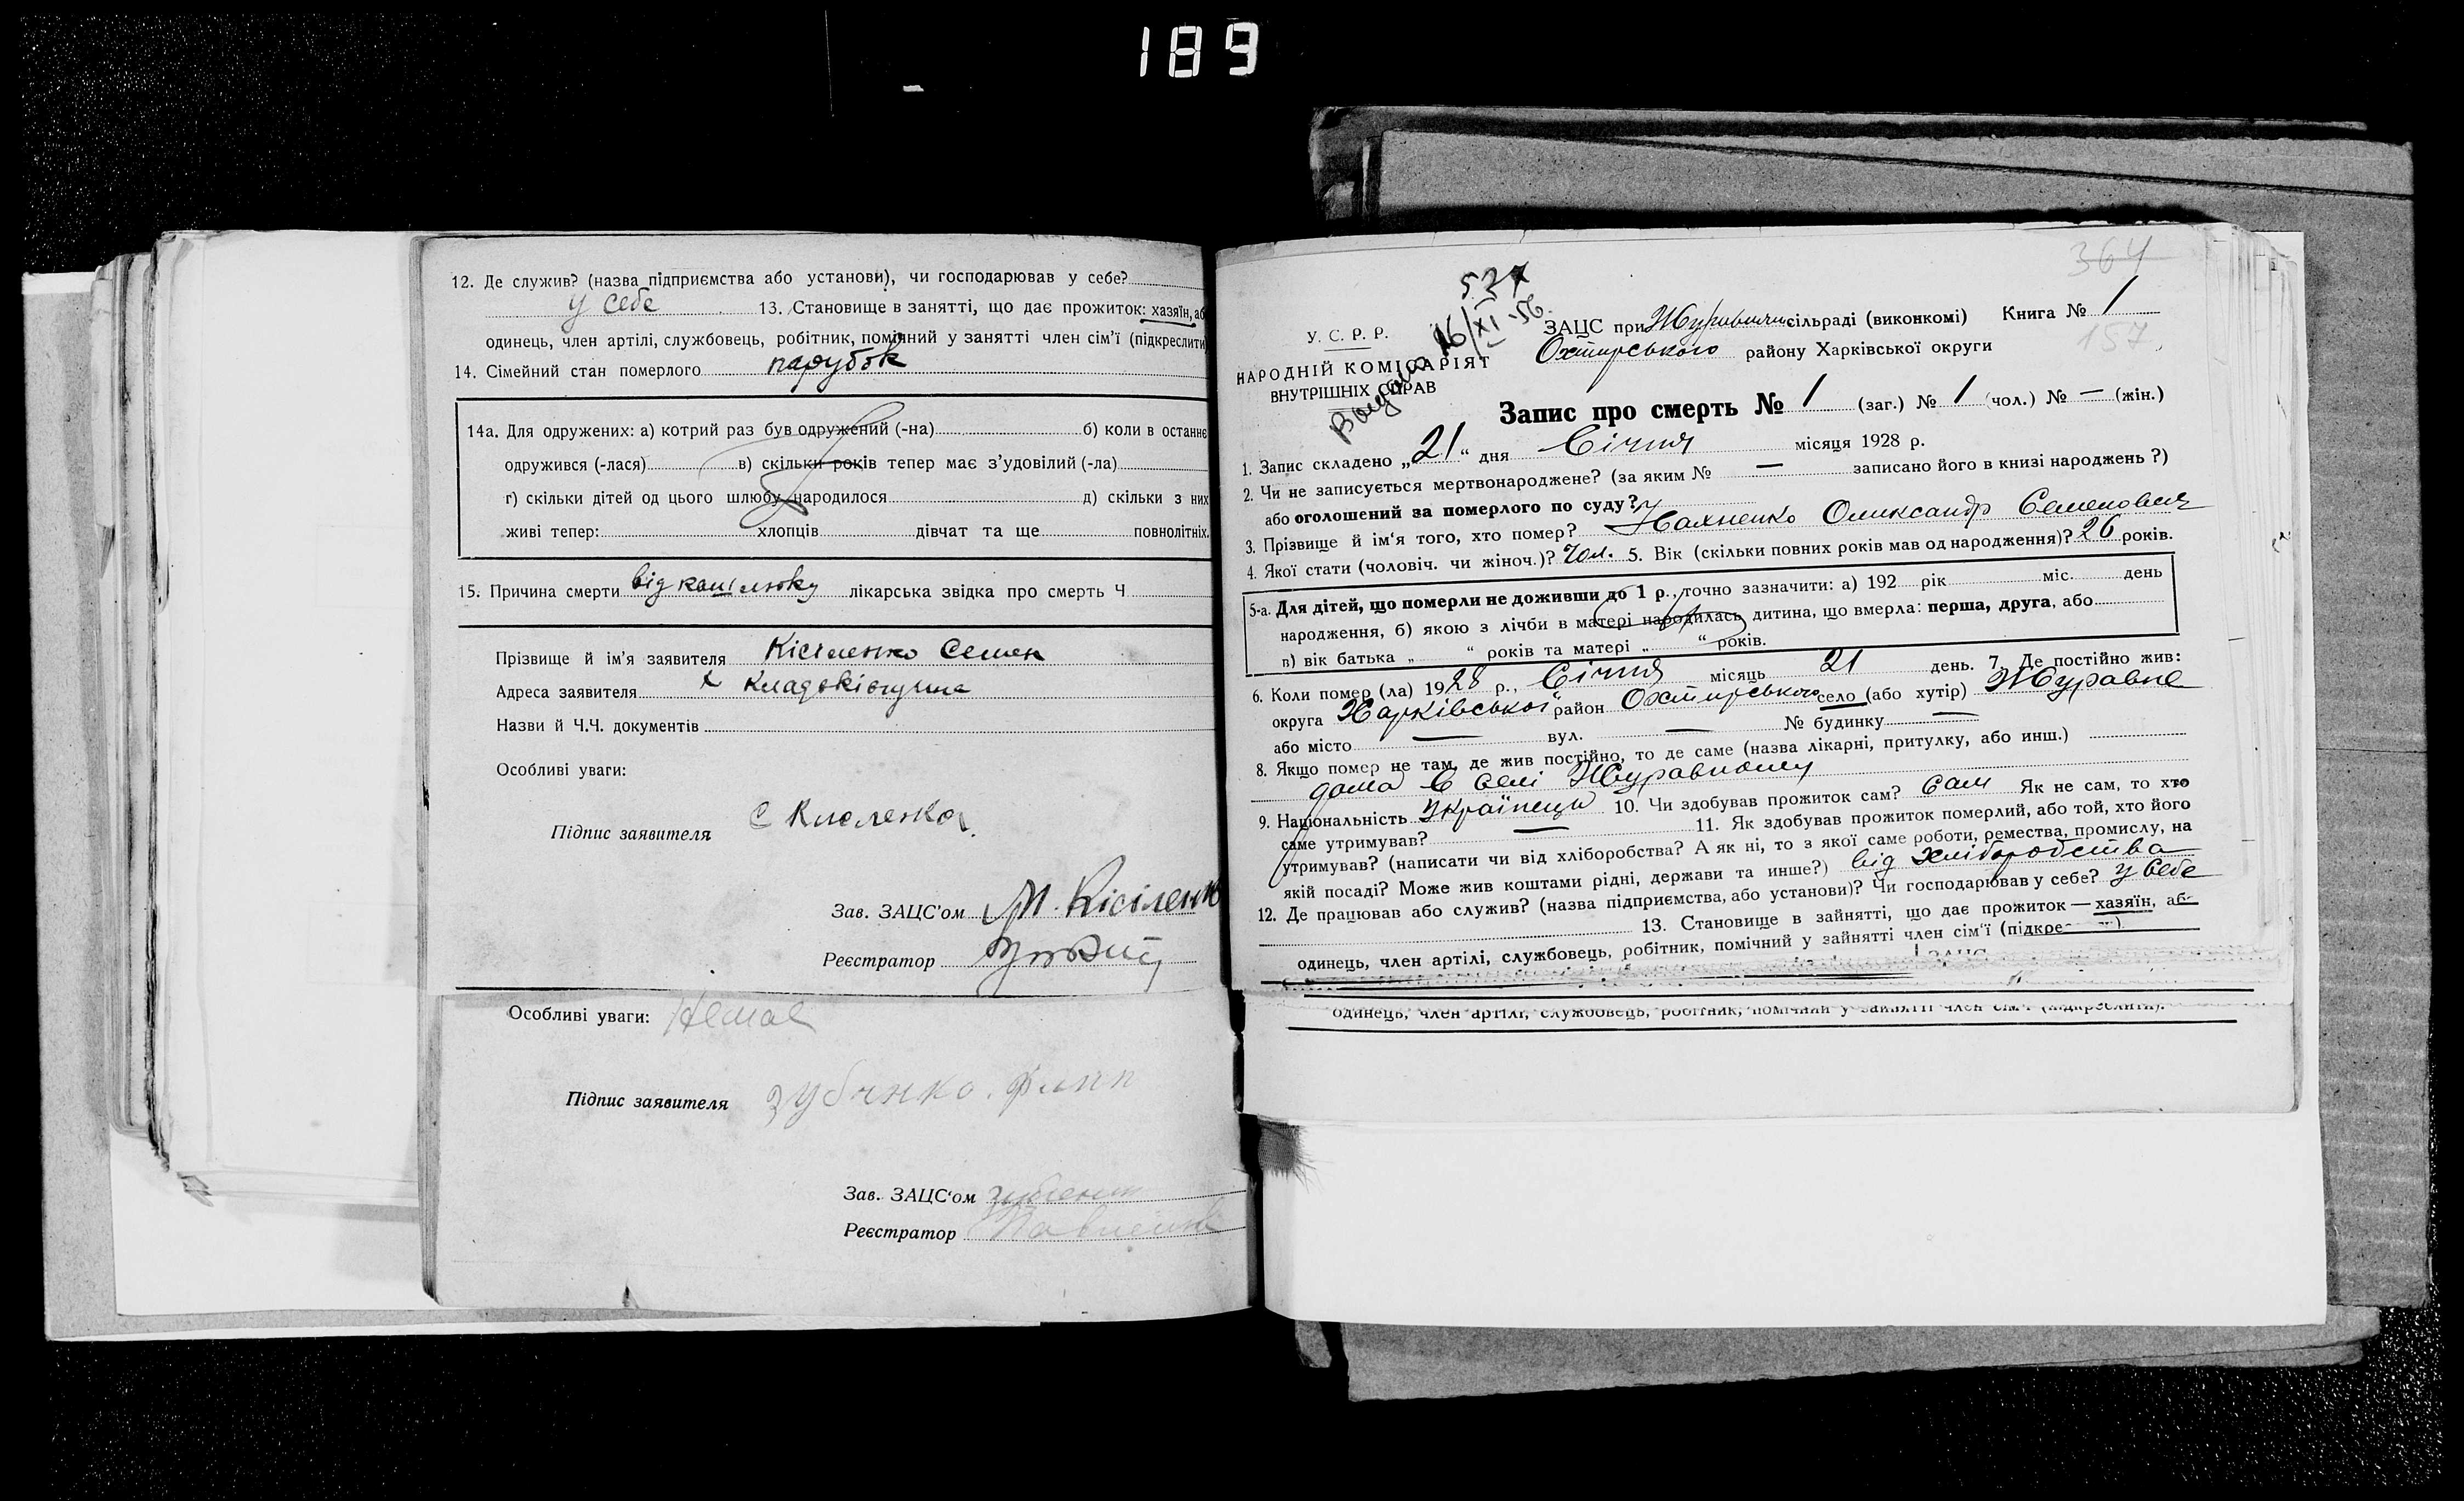 189
12. Де служив? (назва підприємства або установи), чи господарював у себе?
у себе 13. Становище в занятті, що дає прожиток: хазяїн, аб
одинець, член артілі, службовець, робітник, помічний у занятті член сім’ї (підкреслити
14. Сімейний стан померлого парубок
14а. Для одружених: а) котрий раз був одружений (-на) б) коли в останнє
одружився (-лася) в) скільки років тепер має з’удовілий (-ла)
г) скільки дітей од цього шлюбу народилося д) скільки з них
живі тепер: хлопців дівчат та ще повнолітніх.
15. Причина смерти від лікарська звідка про смерть Ч
Прізвище й ім’я заявителя Кісіленко Семен
Адреса заявителя х
Назви й Ч.Ч. документів
Особливі уваги:
Підпис заявителя С
Зав. ЗАЦС’ом М. Кісіленко
Реєстратор
Особливі уваги: Немає
Підпис заявителя
Зав. ЗАЦС‘ом
Реєстратор
364
16/XI-56
У. С. Р. Р.
НАРОДНІЙ КОМІСАРІЯТ
ВНУТРІШНІХ СПРАВ
ЗАЦС при сільраді (виконкомі) Книга № 1
Охтирського району Харківської округи
157
Запис про смерть № 1 (заг.) № 1 (чол.) № — (жін.)
1. Запис складено „21“ дня Січня місяця 1928 р.
2. Чи не записується мертвонароджене? (за яким № — записано його в книзі народжень ?)
або оголошений за померлого по суду?
3. Прізвище й ім‘я того, хто помер? Олександр Семенович
4. Якої стати (чоловіч. чи жіноч.)? Чол. 5. Вік (скільки повних років мав од народження)? 26 років.
5-а. Для дітей, що померли не доживши до 1 р., точно зазначити: а) 192 рік міс. день
народження, б) якою з лічби в матері народилась дитина, що вмерла: перша, друга, або
в) вік батька „ “ років та матері „ “ років.
6. Коли помер (ла) 1928 р., Січня місяць 21 день. 7. Де постійно жив:
округа Харківської район Охтирського село (або хутір) Журавне
або місто — вул. — № будинку —
8. Якщо помер не там, де жив постійно, то де саме (назва лікарні, притулку, або инш.)
дома в селі Журавному
9. Національність Українець 10. Чи здобував прожиток сам? Сам Як не сам, то хто
саме утримував? — 11. Як здобував прожиток померлий, або той, хто його
утримував? (написати чи від хліборобства? А як ні, то з якої саме роботи, ремества, промислу, на
якій посаді? Може жив коштами рідні, держави та инше?) від хліборобства
12. Де працював або служив? (назва підприємства, або установи)? Чи господарював у себе? у себе
13. Становище в зайнятті, що дає прожиток — хазяїн, аб
одинець, член артілі, службовець, робітник, помічний у зайнятті член сім‘ї (підкре
ЗАЦС
одинець, член артілі, службовець, робітник, помічний у зайнятті член сім‘ї (підкреслити).